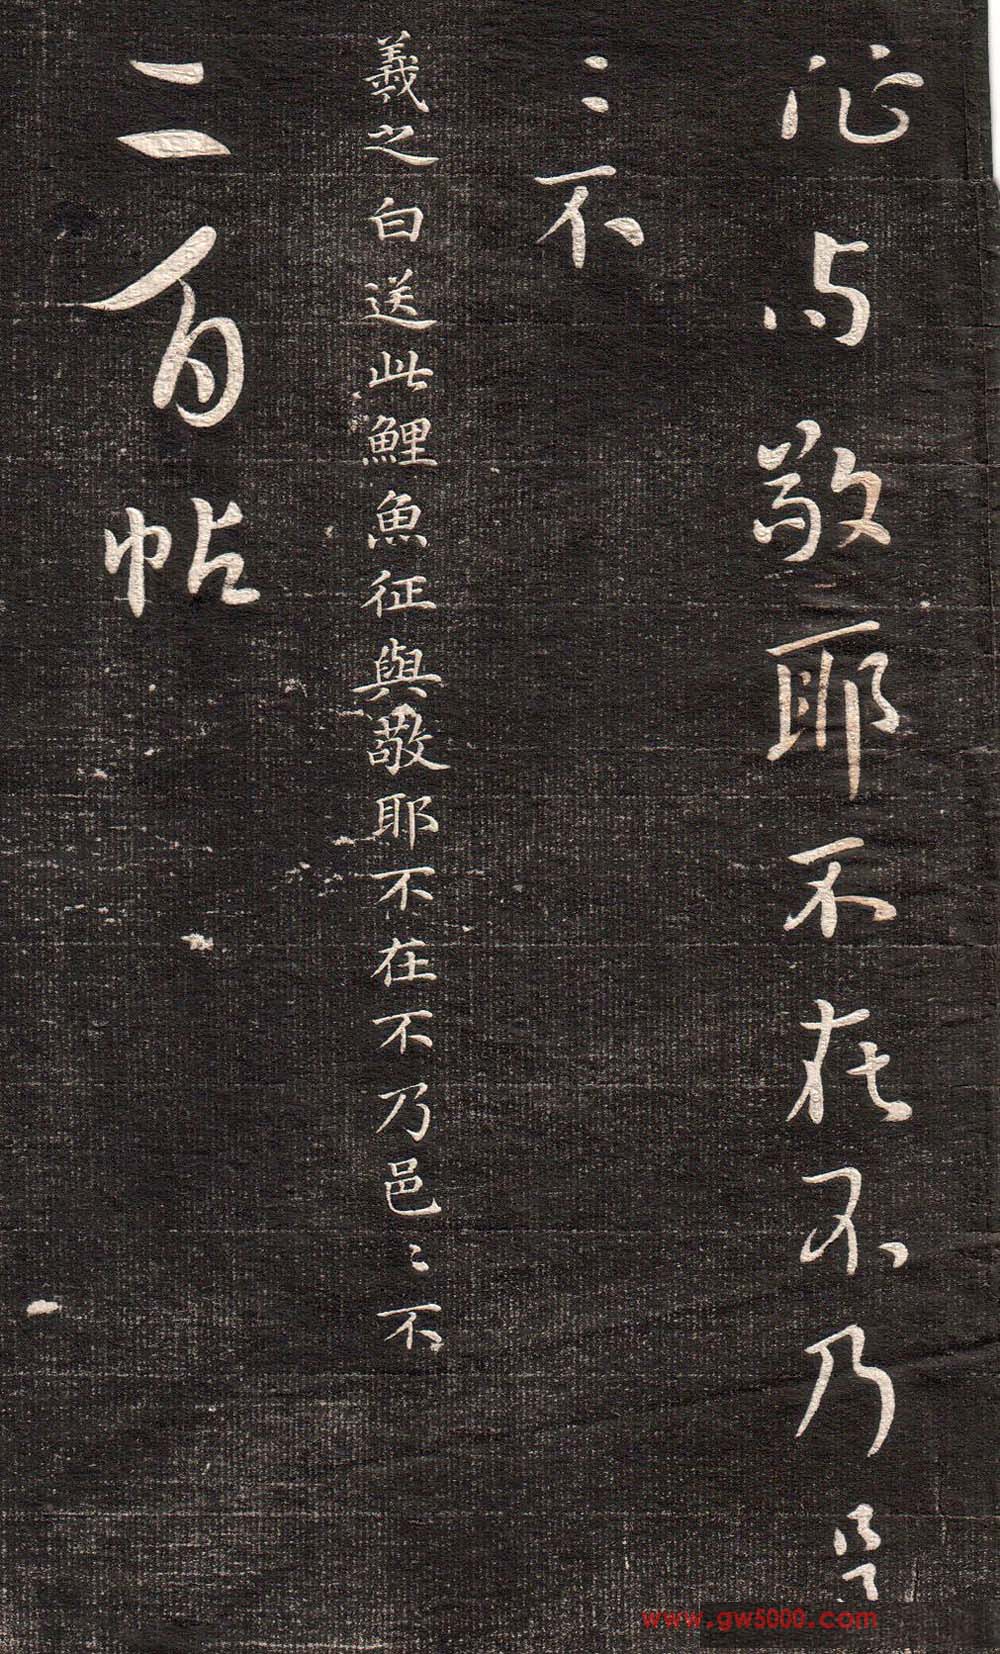 征与敬耶不在不乃邑
〻不
羲之白送此鯉魚征與敬耶不在不乃邑〻不
二百帖
www.gw5000.com